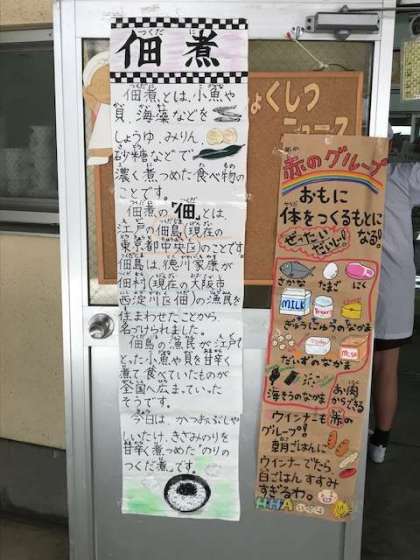 つくだ に
佃煮
佃煮とは、小魚や
貝、海藻などを
しょうゆ、みりん、
砂糖などで
濃く煮つめた食べ物の
ことです。
佃煮の「佃」とは、
江戸の佃島(現在の
東京都中央区)のことです。
佃島は、徳川家康が
佃村(現在の大阪市
西淀川区佃)の漁民を
住まわせたことから
名づけられました。
佃島の漁民が江戸で
とった小魚や貝を甘辛く
煮て食べていたものが
全国へ広まっていった
そうです。
今日は、かつおぶしや
しいたけ、きざみのりを
甘辛く煮つめた"のりの
つくだ煮"です。
ょくしつ
ニュース
赤のグループ
おもに
体をつくるもとに
なる!
ぜったい
さかな たまご にく
MILK
ぎゅうにゅうのなかま
だいずのなかま
海そうのなかま
お肉
からできる
ウインナーも赤の
グループ!!
朝ごはんに
ウインナーでたら、
白ごはんすすみ
すぎるわ。